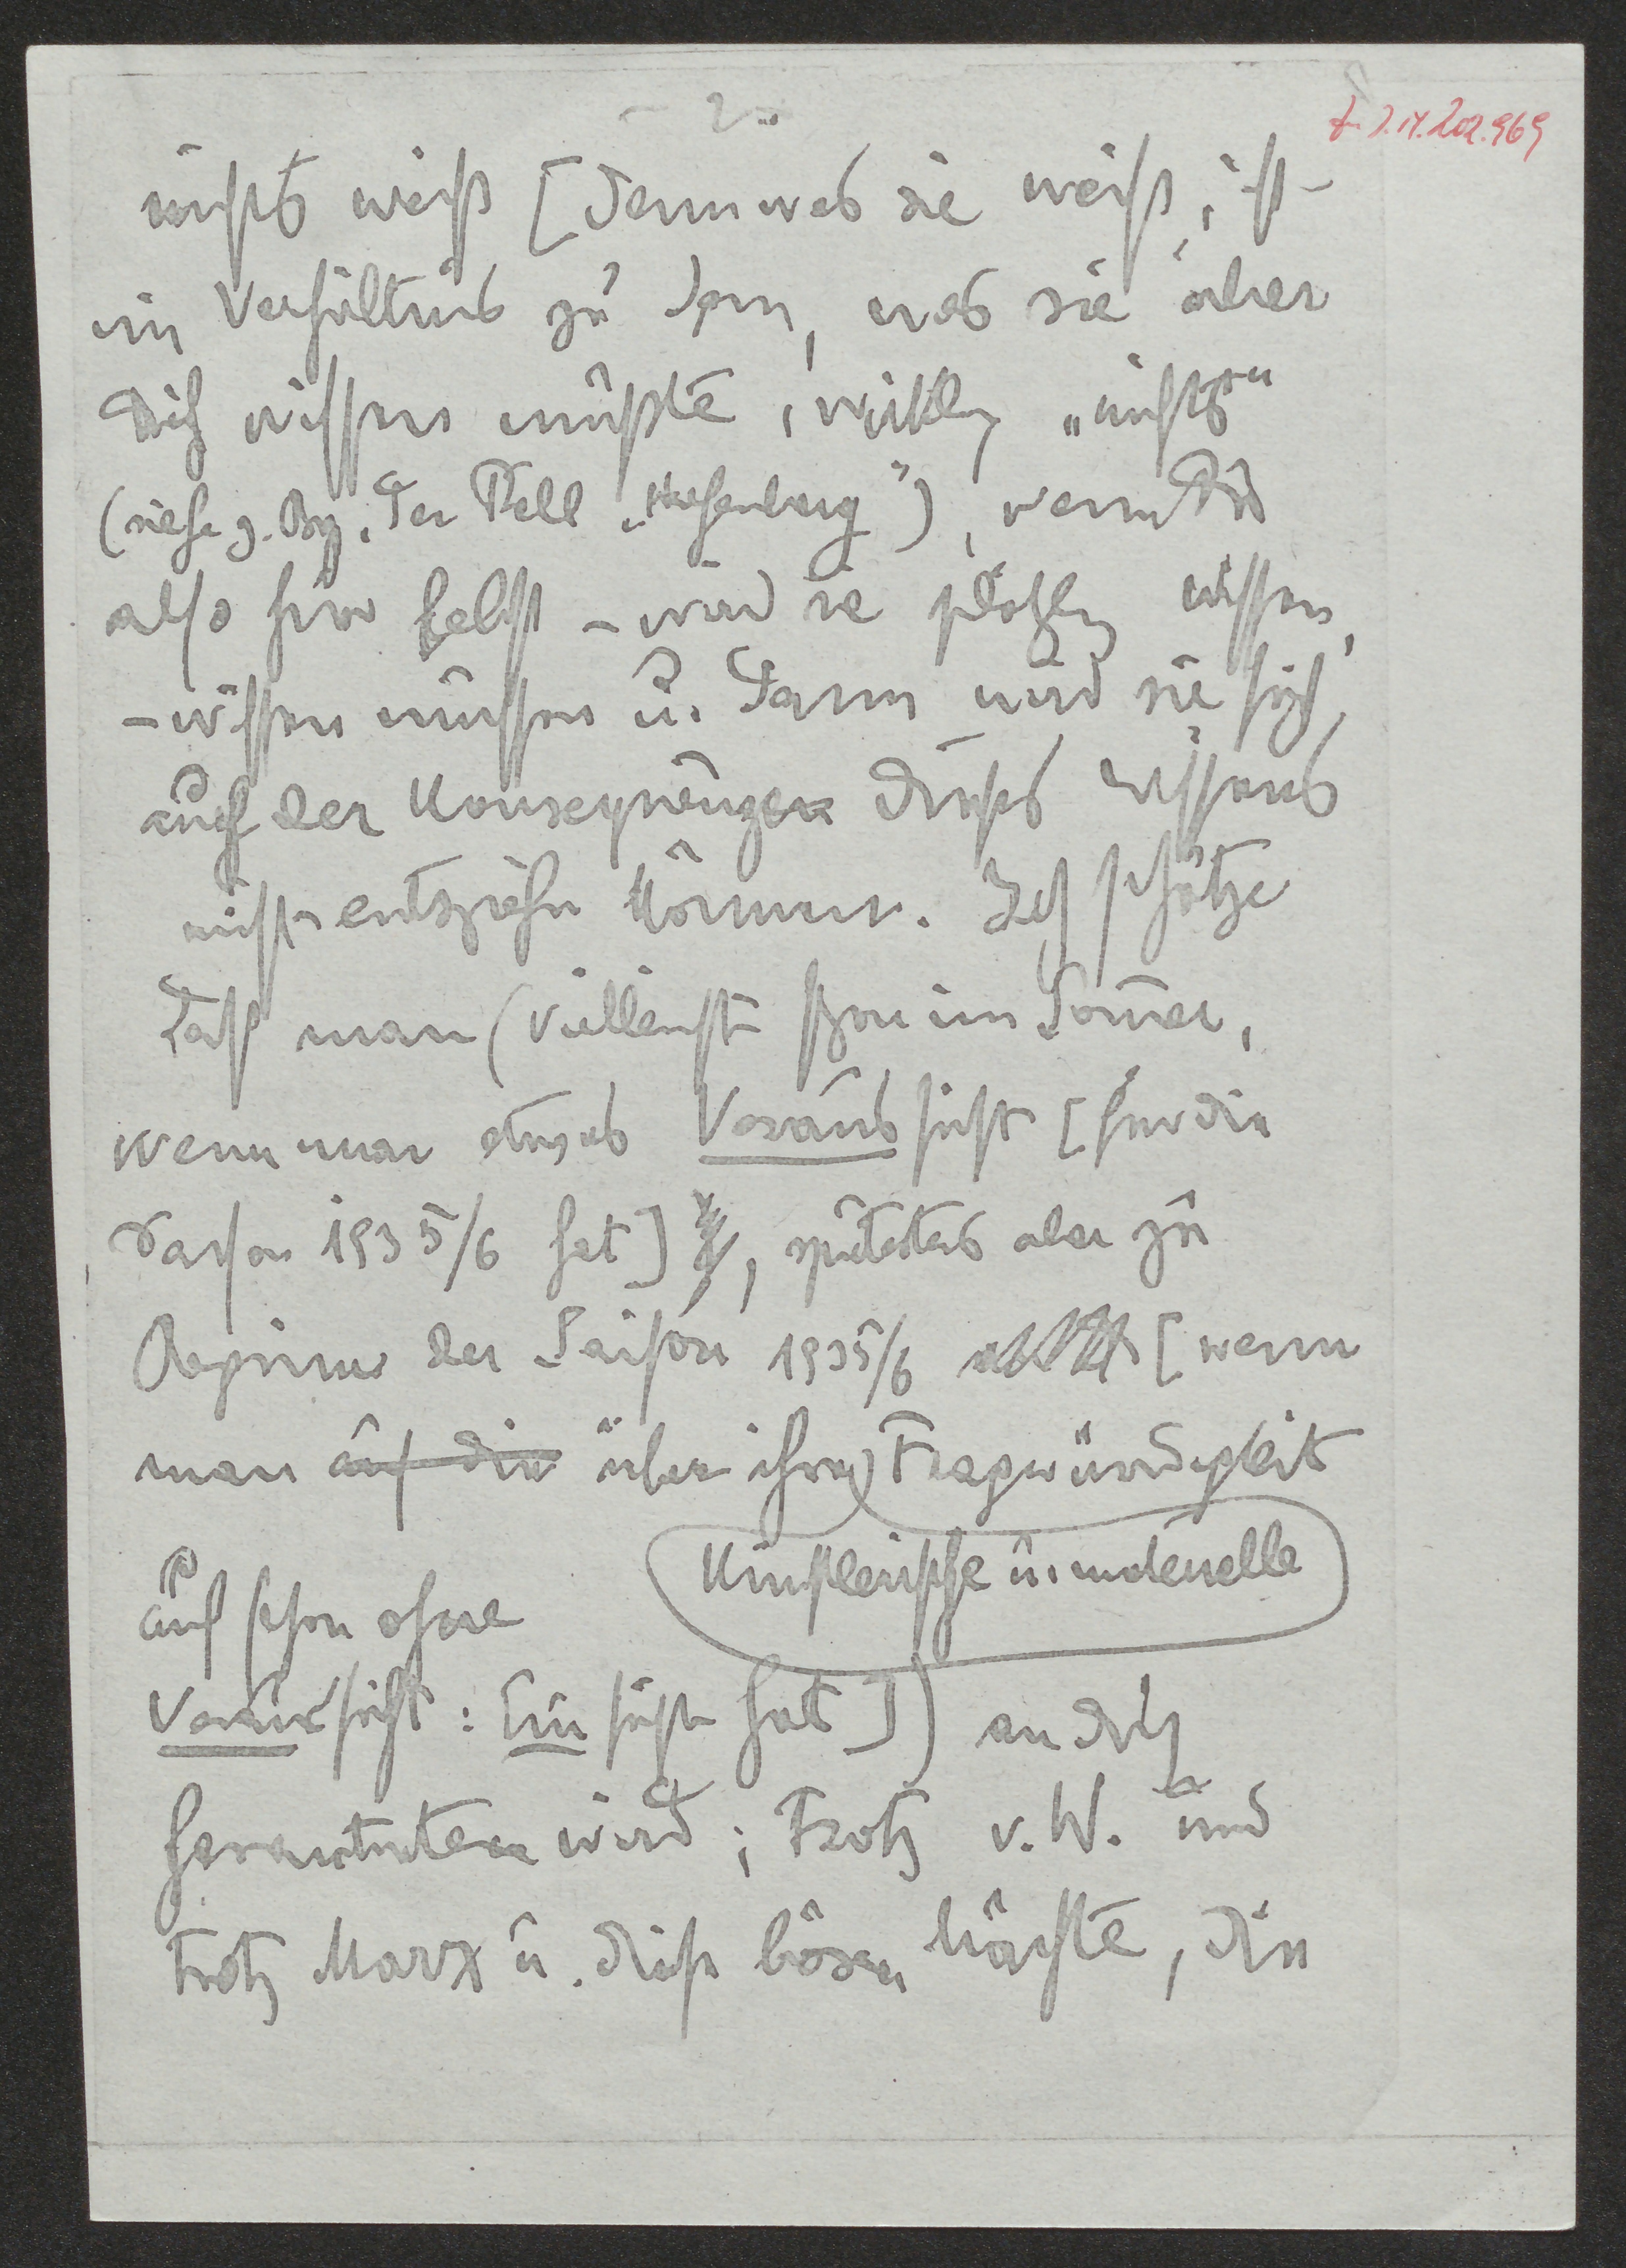 - 2 -
nichts weiß [denn was sie weiß, ist
im Verhältnis zu dem, was sie über
Dich wissen müßte, wirklich „nichts“
(siehe z. Bsp. der Fall ), wenn
also hier selbst – wird sie plötzlich wissen,
– wissen müssen u. dann wird sie sich
auch der Konsequenzen dieses Wissens
nicht entziehn können. Ich schätze
daß man (vielleicht schon im Sommer,
wenn man etwas Voraussicht [für die
Saison 1935/6 hat], spätestens aber zu
Beginn der Saison 1935/6 [wenn
man auf die über ihre Fragwürdigkeit
künstlerische u. materielle
auch schon ohne
Voraussicht: Einsicht hat]) an Dich
herantreten wird; trotz v. W. und
trotz Marx u. diese bösen Mächte, die